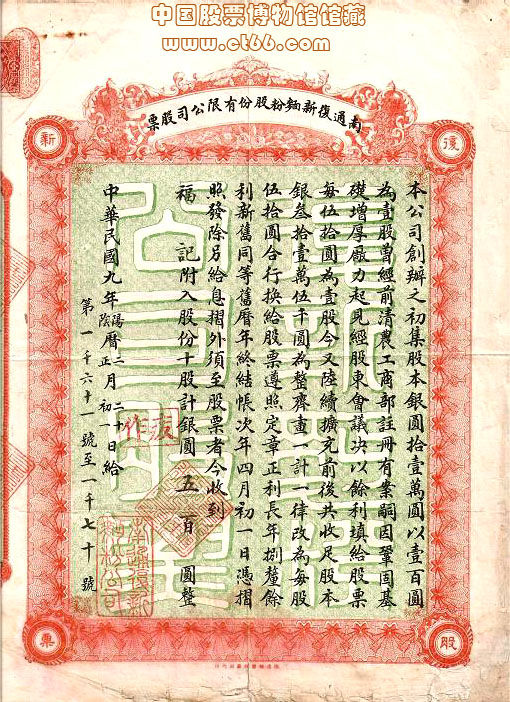 中国股票博物馆馆藏
www.ct66.com
南通復新麵粉股份有限公司股票
復
新
本公司創辦之初集股本銀圓拾壹萬圓以壹百圓
為壹股曾經前清農工商部註冊有案嗣因鞏固基
礎增厚壓力起見經股東會議决以餘利填給股票
每伍拾圓為壹股今又陸續擴充前後共收足股本
銀叁拾壹萬伍千圓為整齊畫一計一律改為每股
伍拾圓合行換給股票遵照定章正利長年捌釐餘
利新舊同等舊曆年終結帳次年四月初一日憑摺
照發除另給息摺外須至股票者今收到
福記附入股份十股計銀圓五百圓整
中華民國九年陽陰曆二正月二十初一日給
第一千六十一號至一千七十號
股
票